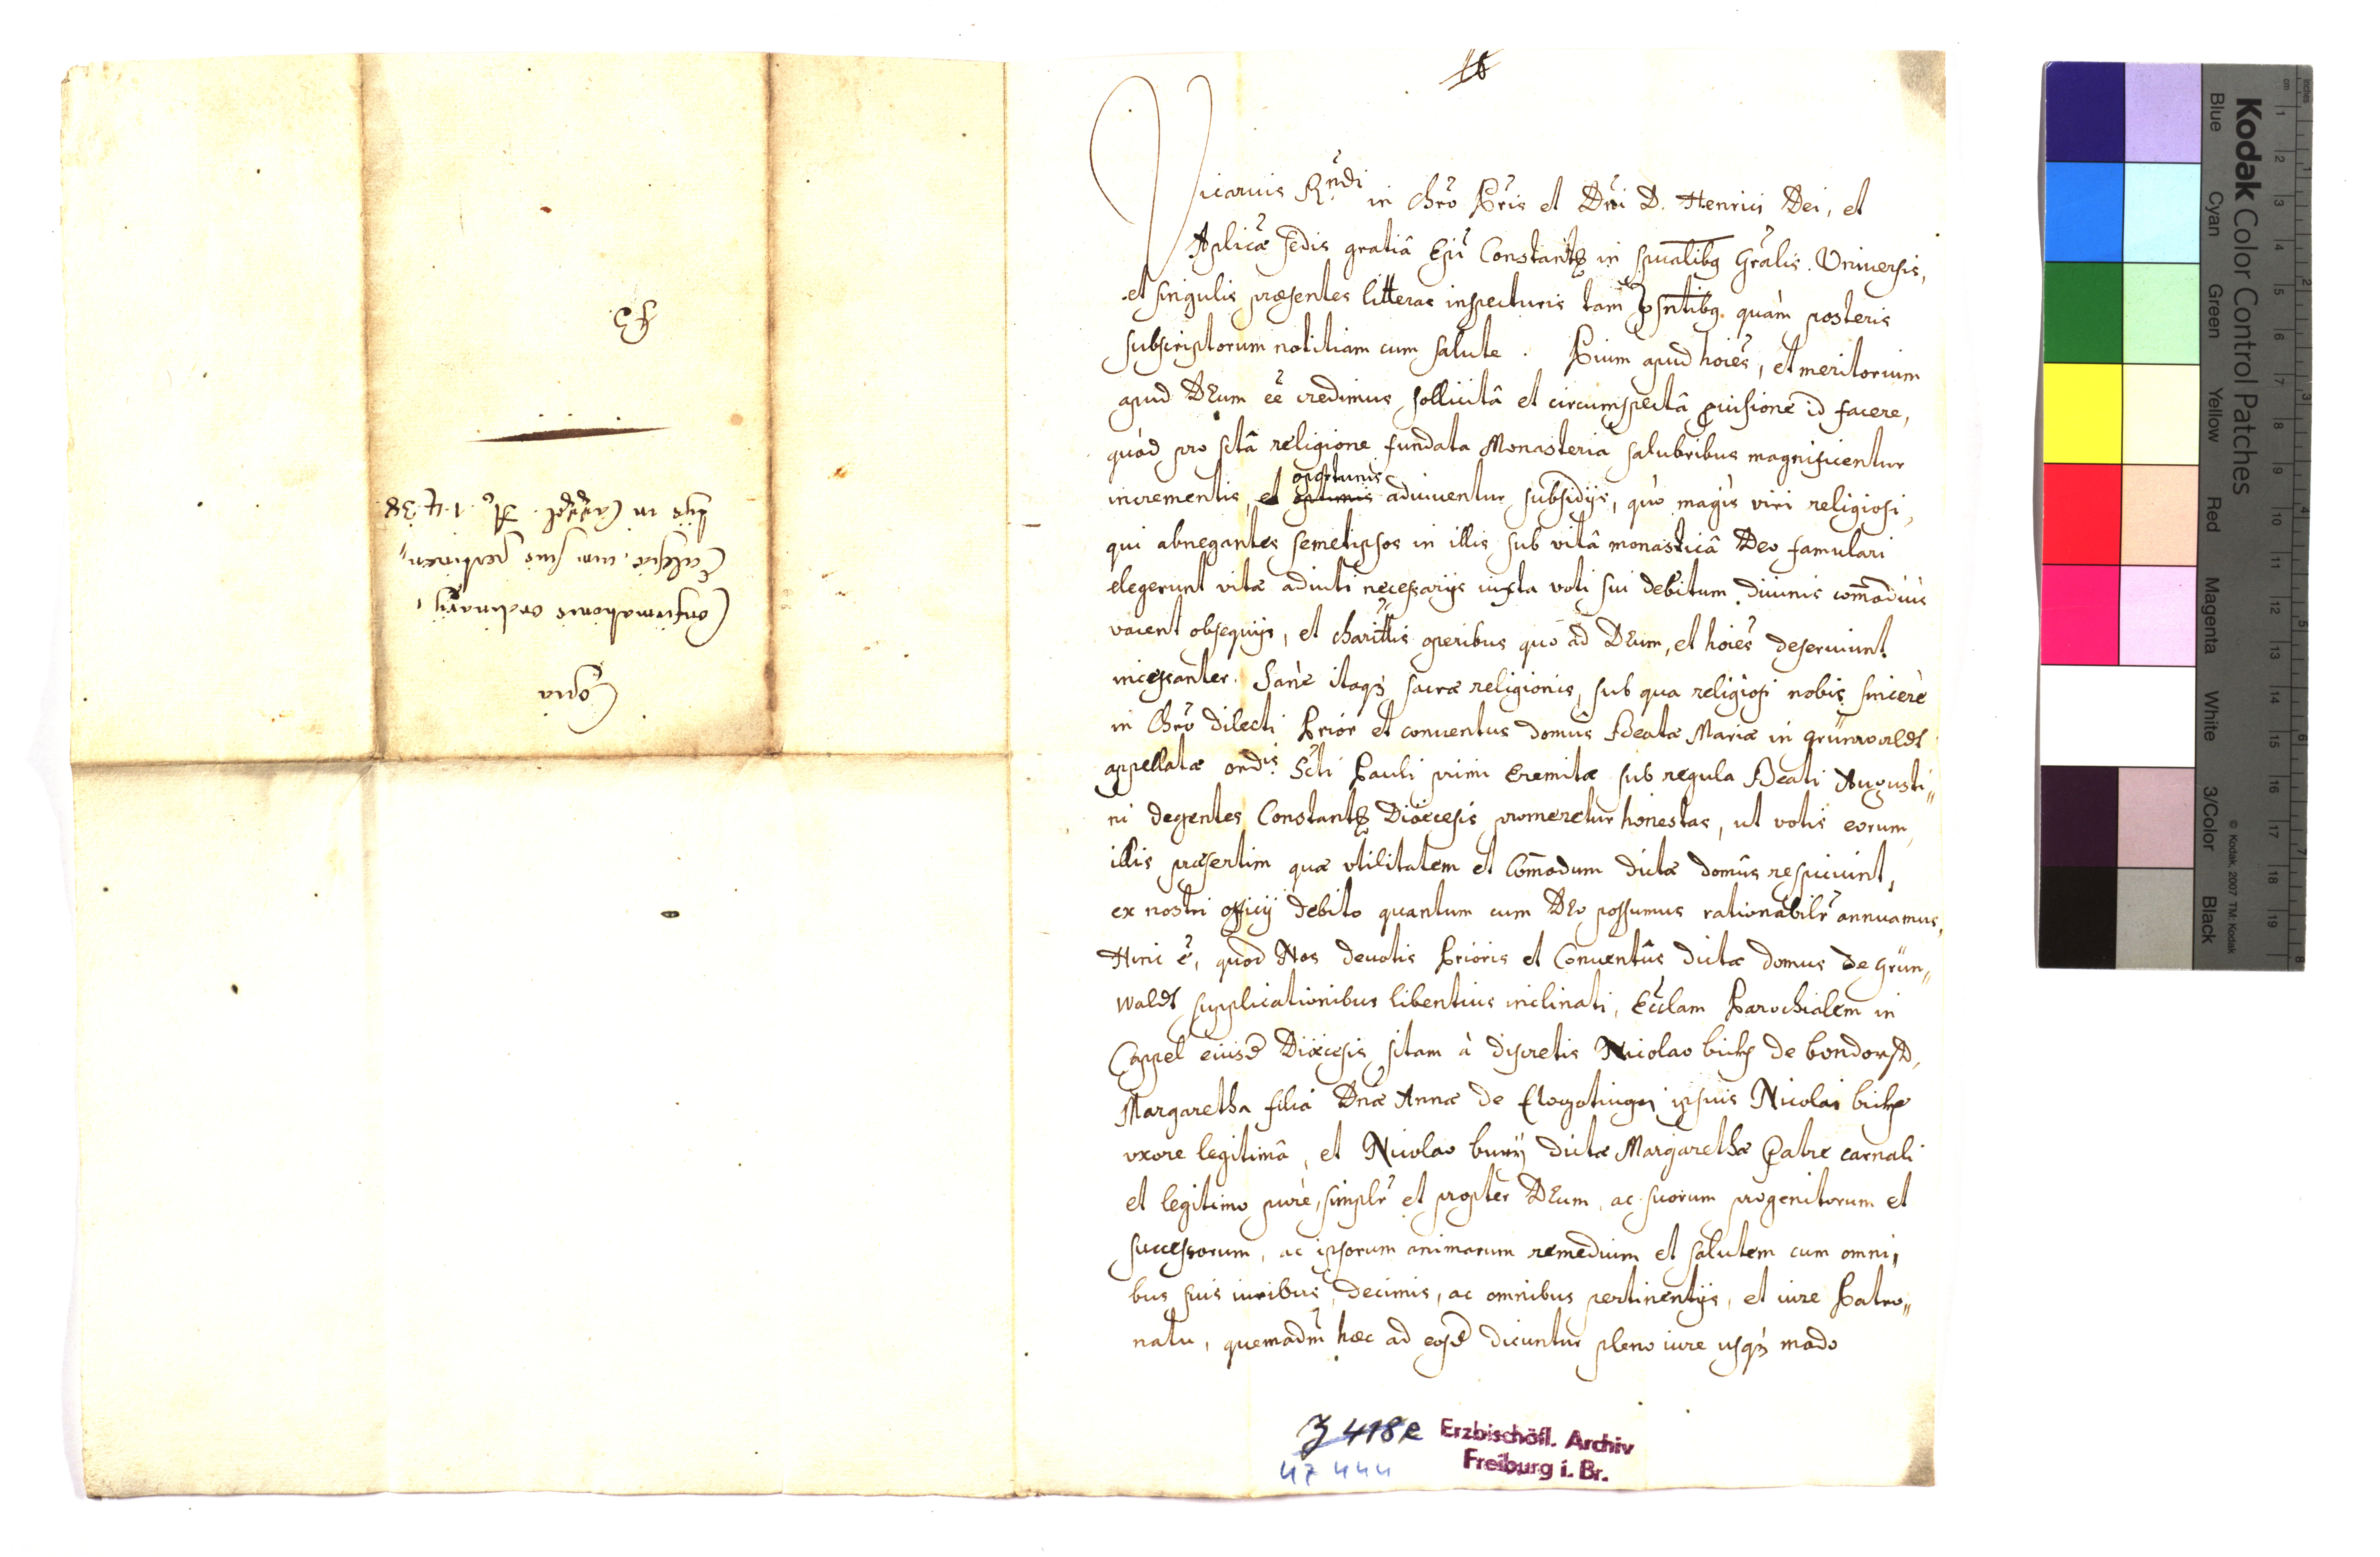 Copia
Confirmationis ordinariÿ,
Ecclesiæ, cum suis pertinen„
tÿs in Cappel. Aº. 1438.
16
Vicarius R.ndi in Chro Pris et Dni D. Henrici Dei, et
Aplicæ sedis gratiâ Epi Constant. in spualibq Gralis. Vniuersis,
et singulis præsentes litteras inspecturis tam psntibq. quàm posteris
subscriptorum notitiam cum salute. Pium apud hoies, et meritorium
apud DEum ee credimus sollicitâ et circumspectâ puisione id facere,
quòd pro sctâ religione fundata Monasteria salubribus magnificentur
incrementis, et optimis oportunis adiuuentur subsidÿs, quò magis viri religiosi,
qui abnegantes semetipsos in illis sub vitâ monasticâ Deo famulari
elegerunt vitæ adiuti necessarÿs iuxta voti sui debitum diuinis com̄odiùs
vacent obsequÿs, et charittis operibus quo ad DEum, et hoies deseruiunt
incessanter. Sanè itaqȝ sacræ religionis, sub qua religiosi nobis sincerè
in Chro dilecti Prior et conuentus domûs Beatæ Mariæ in grünwaldt
appellatæ ord.is Scti Pauli primi Eremitæ sub regula Beati Augusti„
ni degentes Constant. Diœcesis promeretur honestas, ut votis eorum,
illis præsertim quæ vtilitatem et Com̄odum dictæ domûs respiciunt,
ex nostri officÿ debito quantum cum DEo possumus rationabilr annuamus,
Hinc è, quod Nos deuotis Prioris et Conuentûs dictæ domus de Grün„
waldt supplicationibus libentius inclinati, Ecclam Parochialem in
Cappel eiusd Diœcesis sitam à discretis Nicolao de bondorff,
Margaretha filia Dnæ Annæ de ipsius Nicolai
vxore legitimâ, et Nicolao burÿ dictæ Margarethæ Patre carnali
et legitimo purè, simplr et propter DEum, ac suorum progenitorum et
successorum, ac ipsorum animarum remedium et salutem cum omni„
bus suis iuribus, decimis, ac omnibus pertinentÿs, et iure Patro„
natu, quemadm hæc ad eosd dicuntur pleno iure usqȝ modo
J 418e
47 444
Erzbischöfl. Archiv
Freiburg i. Br.
Kodak Color Control Patches
Blue Cyan Green Yellow Red Magenta White 3/Color Black
© Kodak, 2007 TM: Kodak
inches 1 2 3 4 5 6 7 8
cm 1 2 3 4 5 6 7 8 9 10 11 12 13 14 15 16 17 18 19